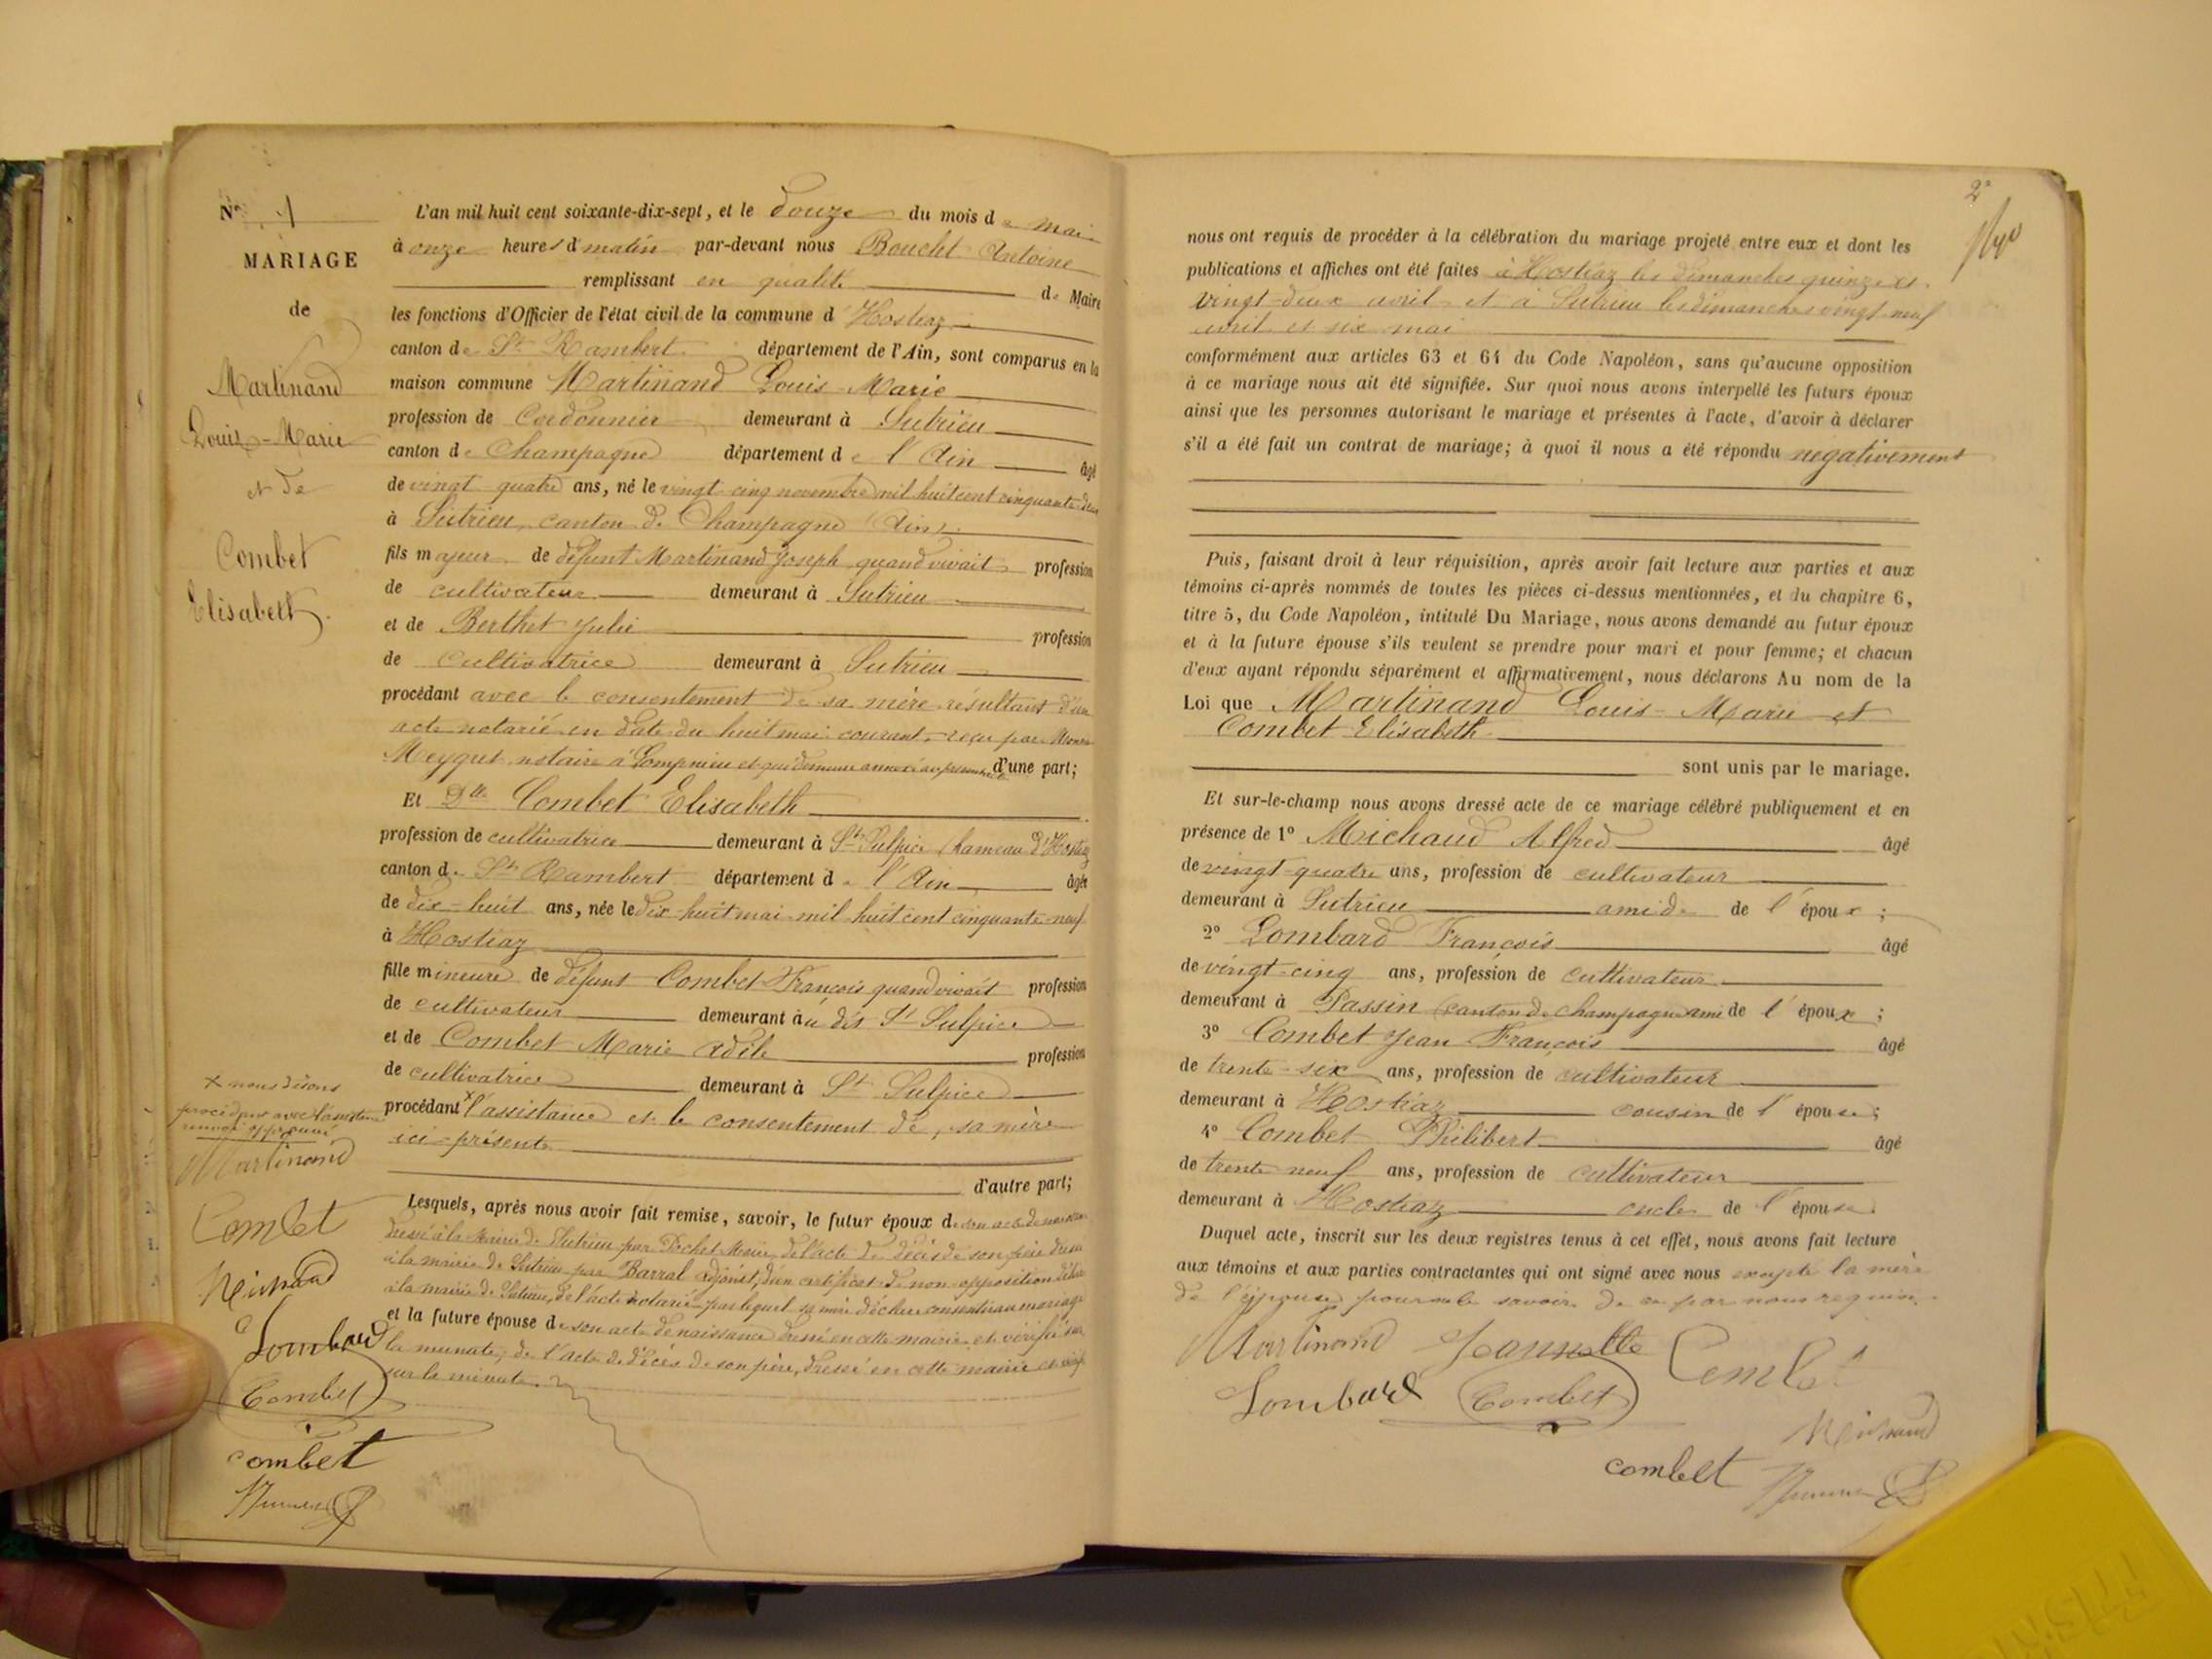 N° 1
MARIAGE
de
Martinand
Louis-Marie
et de
Combet
Elisabeth.
L'an mil huit cent soixante-dix-sept, et le douze du mois de mai
à onze heures d matin par-devant nous Bouchet Antoine
remplissant en qualité de Maire
les fonctions d'Officier de l'état civil de la commune d'Hostiaz
canton de St Rambert département de l'Ain, sont comparus en la
maison commune Martinand Louis-Marie
profession de Cordonnier demeurant à Sutrieu
canton de Champagne département de l'Ain âgé
de vingt-quatre ans, né le vingt cinq novembre mil huit cent cinquante-deux
à Sutrieu, canton de Champagne (Ain).
fils majeur de défunt Martinand Joseph quand vivait profession
de cultivateur demeurant à Sutrieu
et de Berthet Julie profession
de cultivatrice demeurant à Sutrieu
procédant avec le consentement de sa mère résultant d'un
acte notarié en date du huit mai courant, reçu par
Meyguet notaire à et qui demeure annexé au d'une part;
Et Dlle Combet Elisabeth
profession de cultivatrice demeurant à St Sulpice (hameau d'Hostiaz
canton de St Rambert département de l'Ain âgée
de dix-huit ans, née le dix-huit mai mil huit cent cinquante-neuf
à Hostiaz
fille mineure de défunt Combet François quand vivait profession
de cultivateur demeurant au dit St Sulpice
et de Combet Marie Adèle profession
de cultivatrice demeurant à St Sulpice
procédant x l'assistance et le consentement de, sa mère
ici présente
d'autre part;
x nous disons
procédant avec l'assistance
renvoi approuvé
Martinand
Combet
Michaud
Lombard
Combet
combet
Lesquels, après nous avoir fait remise, savoir, le futur époux de son acte de naissance
dressé à la Mairie de Sutrieu par Pochet Maire, de l'acte de décès de son père dressé
à la mairie de Sutrieu par Barral adjoint, d'un certificat de non opposition délivré
à la mairie de Sutrieu, de l'acte notarié par lequel sa mère déclare consentir au mariage
et la future épouse de son acte de naissance dressé en cette mairie et vérifié sur
la minute, de l'acte de décès de son père, dressé en cette mairie et vérifié
sur la minute.
2e
nous ont requis de procéder à la célébration du mariage projeté entre eux et dont les
publications et affiches ont été faites à Hostiaz les dimanches quinze et
vingt-deux avril et à Sutrieu les dimanches vingt neuf
avril et six mai
conformément aux articles 63 et 64 du Code Napoléon, sans qu'aucune opposition
à ce mariage nous ait été signifiée. Sur quoi nous avons interpellé les futurs époux
ainsi que les personnes autorisant le mariage et présentes à l'acte, d'avoir à déclarer
s'il a été fait un contrat de mariage; à quoi il nous a été répondu negativement
Puis, faisant droit à leur réquisition, après avoir fait lecture aux parties et aux
témoins ci-après nommés de toutes les pièces ci-dessus mentionnées, et du chapitre 6,
titre 5, du Code Napoléon, intitulé Du Mariage, nous avons demandé au futur époux
et à la future épouse s'ils veulent se prendre pour mari et pour femme; et chacun
d'eux ayant répondu séparément et affirmativement, nous déclarons Au nom de la
Loi que Martinand Louis-Marie et
Combet Elisabeth
sont unis par le mariage.
Et sur-le-champ nous avons dressé acte de ce mariage célébré publiquement et en
présence de 1° Michaud Alfred âgé
de vingt-quatre ans, profession de cultivateur
demeurant à Sutrieu ami de de l'époux;
2° Lombard François âgé
de vingt-cinq ans, profession de cultivateur
demeurant à Passin (canton de champagne ami de l'époux;
3° Combet Jean François âgé
de trente-six ans, profession de cultivateur
demeurant à Hostiaz cousin de l'épouse;
4° Combet Philibert âgé
de trente neuf ans, profession de cultivateur
demeurant à Hostiaz oncle de l'épouse.
Duquel acte, inscrit sur les deux registres tenus à cet effet, nous avons fait lecture
aux témoins et aux parties contractantes qui ont signé avec nous excepté la mère
de l'épouse pour ne le savoir de ce par nous requise.
Martinand Jeannette Combet
Lombard Combet
Michaud
combet